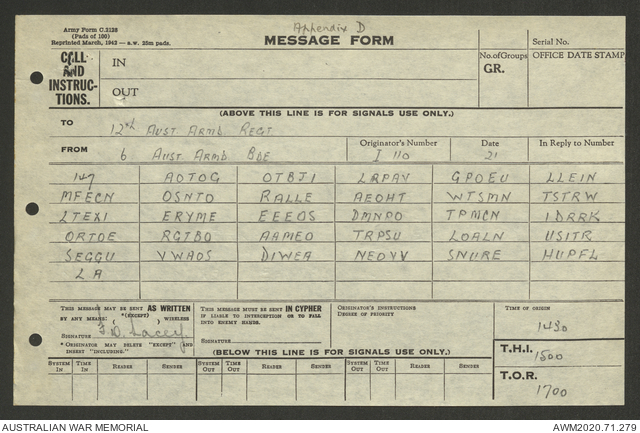 Army Form C.2128
(Pads of 100)
Reprinted March, 1942 — a.w. 25m pads.
Appendix D
MESSAGE FORM
Serial No.
CALL AND INSTRUCTIONS.
IN
OUT
No. of Groups
GR.
OFFICE DATE STAMP
(ABOVE THIS LINE IS FOR SIGNALS USE ONLY.)
TO 12th AUST ARMD REGT
FROM 6 AUST ARMD BDE
Originator's Number
I 110
Date
21
In Reply to Number
147 AOTOG OTBJI LRPAV GPOEU LLEIN
MFECN OSNTO RALLE AEOHT WTSMN TSTRW
LTEXI ERYME EEEOS DMNPO TPMCN IDRRK
ORTOE RGTBO AAMEO TRPSU LOALN USITR
SEGGU VWAOS DIWEA NEOVV SNURE HUPFL
LA
THIS MESSAGE MAY BE SENT AS WRITTEN
BY ANY MEANS. *(EXCEPT) WIRELESS
SIGNATURE Lacey
* ORIGINATOR MAY DELETE "EXCEPT" AND
INSERT "INCLUDING."
THIS MESSAGE MUST BE SENT IN CYPHER
IF LIABLE TO INTERCEPTION OR TO FALL
INTO ENEMY HANDS.
SIGNATURE
ORIGINATOR'S INSTRUCTIONS
DEGREE OF PRIORITY
TIME OF ORIGIN
1430
T.H.I. 1500
T.O.R. 1700
(BELOW THIS LINE IS FOR SIGNALS USE ONLY.)
SYSTEM IN TIME IN READER SENDER SYSTEM OUT TIME OUT READER SENDER SYSTEM OUT TIME OUT READER SENDER
AUSTRALIAN WAR MEMORIAL
AWM2020.71.279